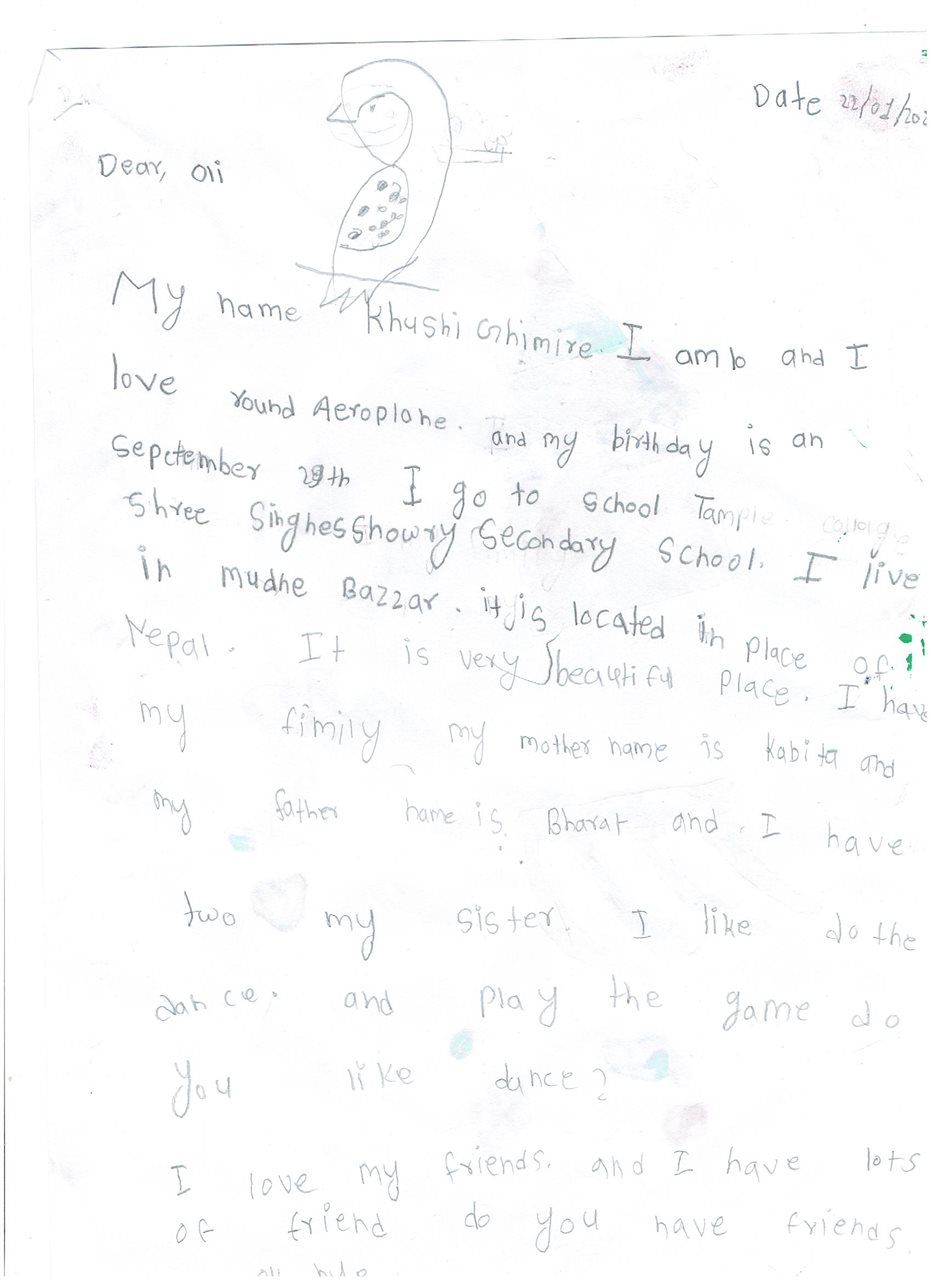 Date 22/01/202
Dear, Oli
My name Khushi Ghimire. I am 10 and I
love round Aeroplane. and my birthday is an
Sepctember 29th I go to school Tample collage
Shree SinghesShowry Secondary School. I live
in mudhe Bazzar. it is located in place of
Nepal. It is very beautiful place. I have
my fimily my mother name is Kabita and
my father name is Bharat and I have
two my sister. I like do the
dance. and play the game do
you like dance?
I love my friends. and I have lots
of friend do you have friends